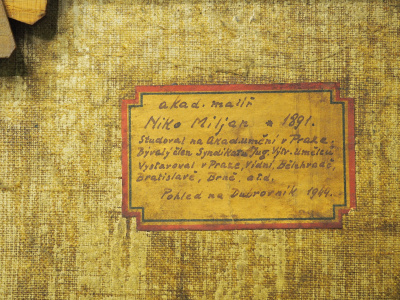 akad. malíř
Niko Miljan * 1891.
Studoval na Akad. umění v Praze,
Bývalý člen Syndikátu Jug. Výtv. Umělců
Vystavoval v Praze, Vídni, Bělehradě,
Bratislavě, Brně, atd.
Pohled na Dubrovník 1964.